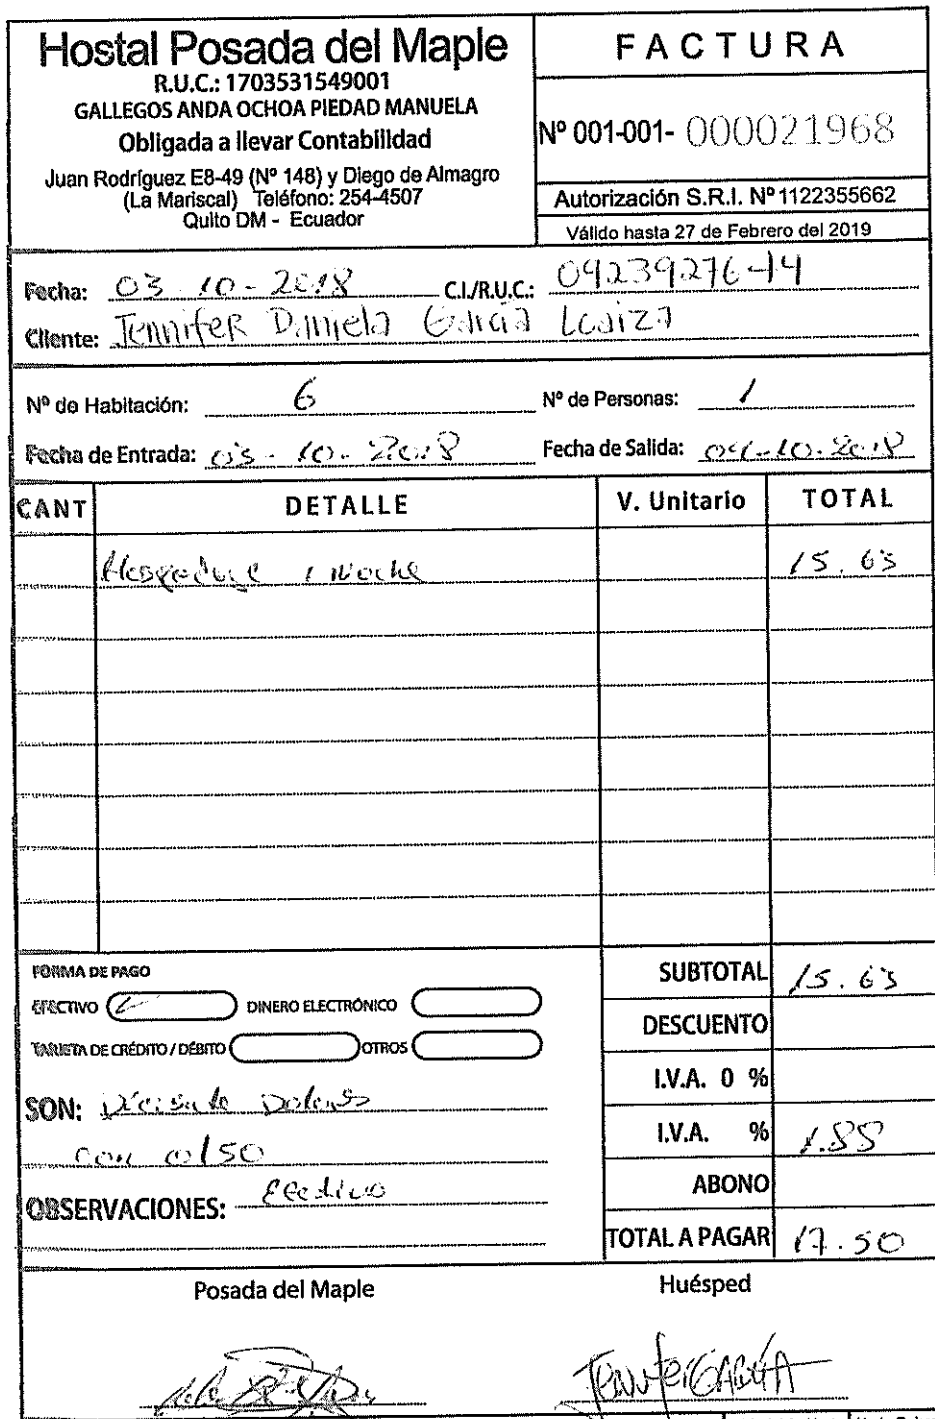 Hostal Posada del Maple
R.U.C.: 1703531549001
GALLEGOS ANDA OCHOA PIEDAD MANUELA
Obligada a llevar Contabilidad
Juan Rodríguez E8-49 (Nº 148) y Diego de Almagro
(La Mariscal) Teléfono: 254-4507
Quito DM - Ecuador
FACTURA
Nº 001-001- 000021968
Autorización S.R.I. Nº 1122355662
Válido hasta 27 de Febrero del 2019
Fecha: 03-10-2018 C.I./R.U.C.: 09239276-14
Cliente: Jennifer Daniela García Loaiza
Nº de Habitación: 6 Nº de Personas: 1
Fecha de Entrada: 03-10-2018 Fecha de Salida: 04-10-2018
CANT DETALLE V. Unitario TOTAL
Hospedaje 1 Noche 15.63
FORMA DE PAGO
EFECTIVO DINERO ELECTRÓNICO
TARJETA DE CRÉDITO / DÉBITO OTROS
SON: Diecisiete Dolares
con 0/50
OBSERVACIONES: Efectivo
SUBTOTAL 15.63
DESCUENTO
I.V.A. 0 %
I.V.A. % 1.88
ABONO
TOTAL A PAGAR 17.50
Posada del Maple Huésped
Jennifer García